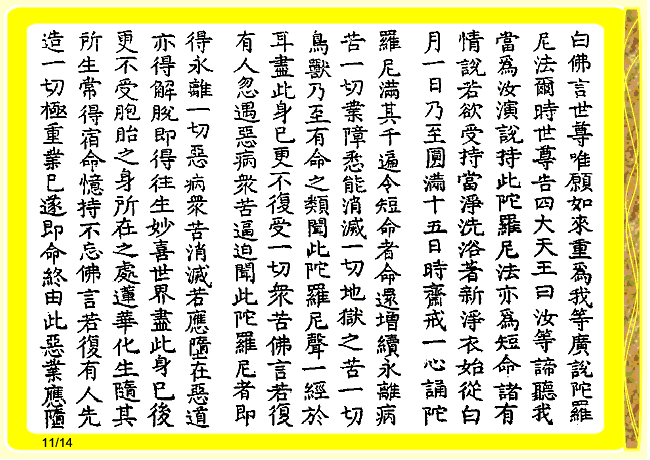 白佛言世尊唯願如來重為我等廣說陀羅
尼法爾時世尊告四大天王曰汝等諦聽我
當為汝演說持此陀羅尼法亦為短命諸有
情說若欲受持當淨洗浴著新淨衣始從白
月一日乃至圓滿十五日時齋戒一心誦陀
羅尼滿其千遍令短命者命還增續永離病
苦一切業障悉能消滅一切地獄之苦一切
鳥獸乃至有命之類聞此陀羅尼聲一經於
耳盡此身已更不復受一切衆苦佛言若復
有人忽遇惡病衆苦逼迫聞此陀羅尼者即
得永離一切惡病衆苦消滅若應隨在惡道
亦得解脫即得往生妙喜世界盡此身已後
更不受胞胎之身所在之處蓮華化生隨其
所生常得宿命憶持不忘佛言若復有人先
造一切極重業已遂即命終由此惡業應隨
11/14